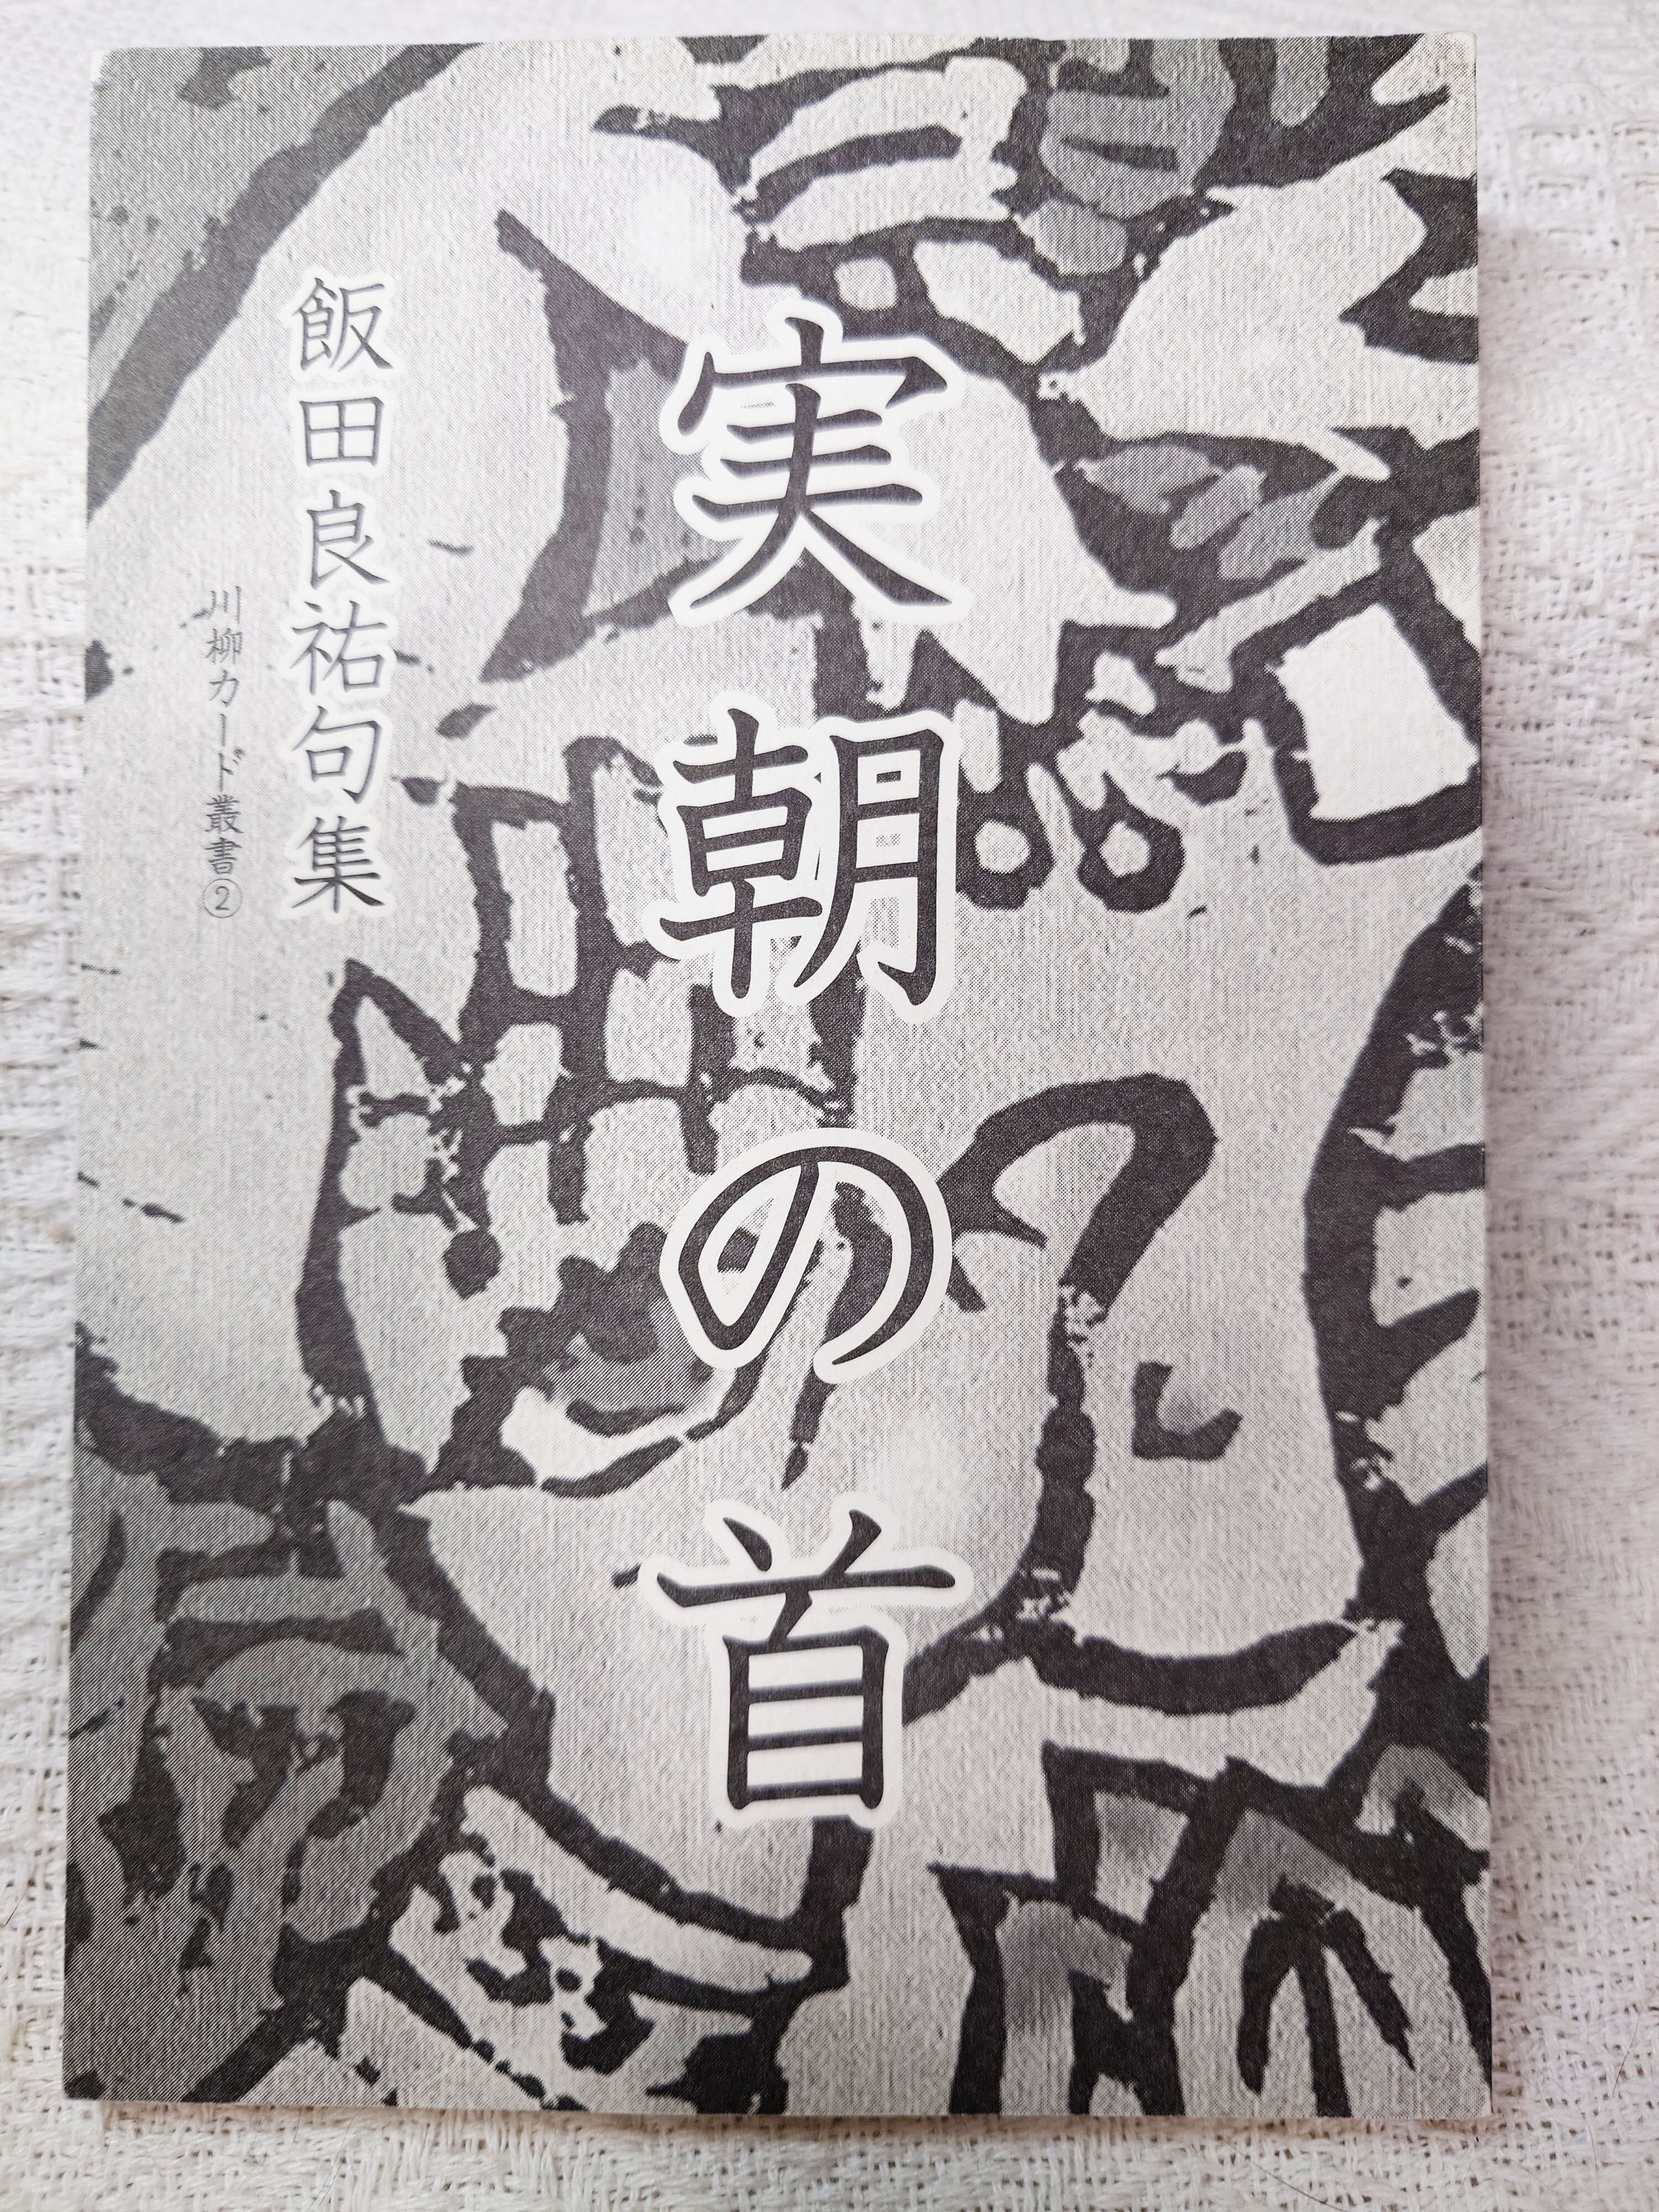 実朝の首
飯田良祐句集
川柳カード叢書②